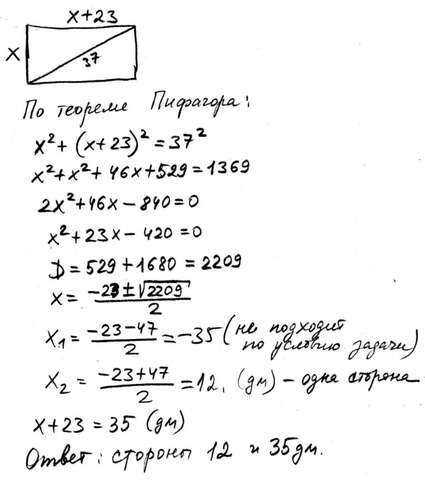 x+23
x
37
По теореме Пифагора:
x²+(x+23)²=37²
x²+x²+46x+529=1369
2x²+46x-840=0
x²+23x-420=0
D=529+1680=2209
x=(-23±√2209)/2
x₁=(-23-47)/2=-35 (не подходит по условию задачи)
x₂=(-23+47)/2=12. (дм) - одна сторона
x+23=35 (дм)
Ответ: стороны 12 и 35дм.